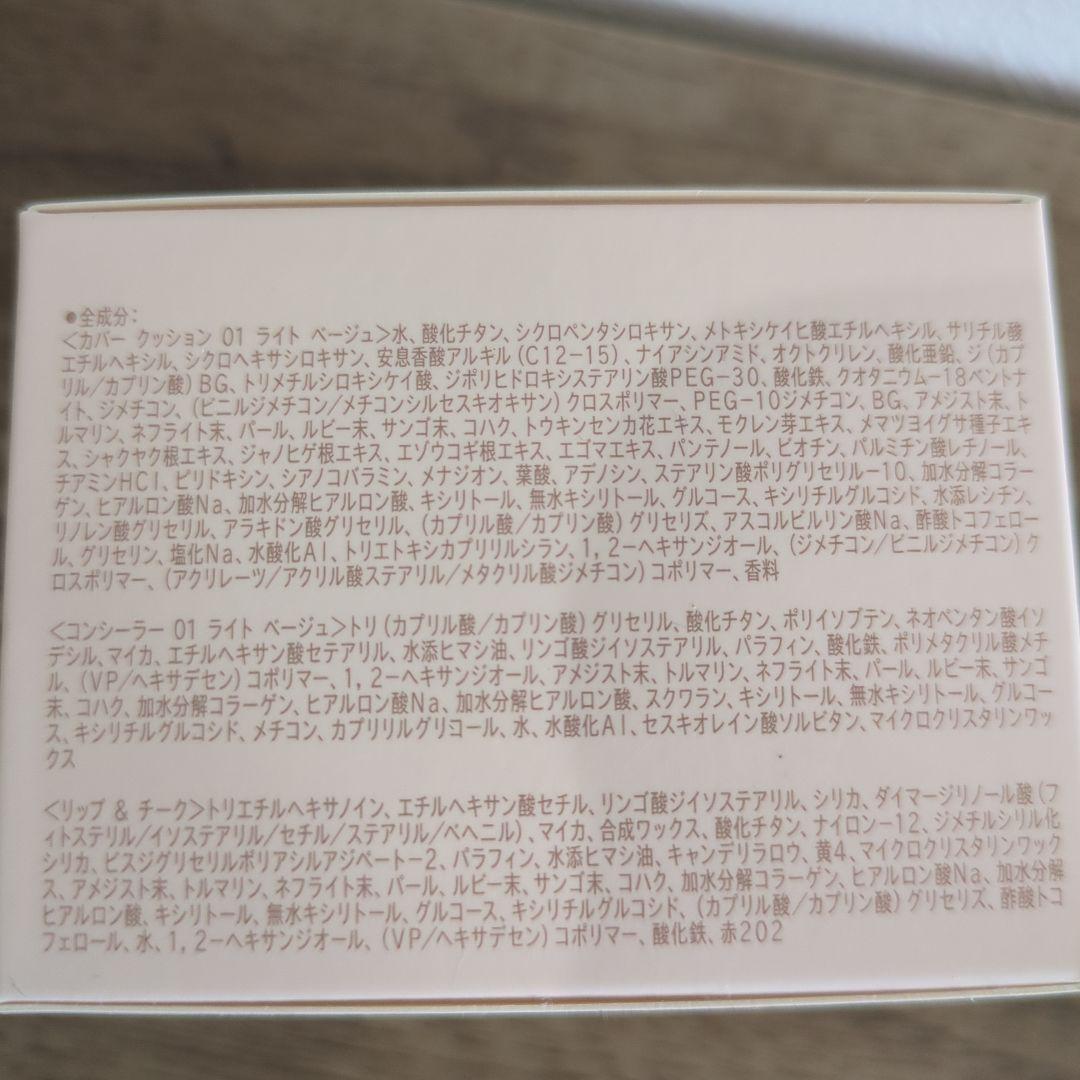 ●全成分:
<カバー クッション 01 ライト ベージュ>水、酸化チタン、シクロペンタシロキサン、メトキシケイヒ酸エチルヘキシル、サリチル酸
エチルヘキシル、シクロヘキサシロキサン、安息香酸アルキル(C12-15)、ナイアシンアミド、オクトクリレン、酸化亜鉛、ジ(カプ
リル/カプリン酸)BG、トリメチルシロキシケイ酸、ジポリヒドロキシステアリン酸PEG-30、酸化鉄、クオタニウム-18ベントナ
イト、ジメチコン、(ビニルジメチコン/メチコンシルセスキオキサン)クロスポリマー、PEG-10ジメチコン、BG、アメジスト末、ト
ルマリン、ネフライト末、パール、ルビー末、サンゴ末、コハク、トウキンセンカ花エキス、モクレン芽エキス、メマツヨイグサ種子エキ
ス、シャクヤク根エキス、ジャノヒゲ根エキス、エゾウコギ根エキス、エゴマエキス、パンテノール、ビオチン、パルミチン酸レチノール、
チアミンHCl、ピリドキシン、シアノコバラミン、メナジオン、葉酸、アデノシン、ステアリン酸ポリグリセリル-10、加水分解コラー
ゲン、ヒアルロン酸Na、加水分解ヒアルロン酸、キシリトール、無水キシリトール、グルコース、キシリチルグルコシド、水添レシチン、
リノレン酸グリセリル、アラキドン酸グリセリル、(カプリル酸/カプリン酸)グリセリズ、アスコルビルリン酸Na、酢酸トコフェロー
ル、グリセリン、塩化Na、水酸化Al、トリエトキシカプリリルシラン、1,2-ヘキサンジオール、(ジメチコン/ビニルジメチコン)ク
ロスポリマー、(アクリレーツ/アクリル酸ステアリル/メタクリル酸ジメチコン)コポリマー、香料
<コンシーラー 01 ライト ベージュ>トリ(カプリル酸/カプリン酸)グリセリル、酸化チタン、ポリイソブテン、ネオペンタン酸イソ
デシル、マイカ、エチルヘキサン酸セテアリル、水添ヒマシ油、リンゴ酸ジイソステアリル、パラフィン、酸化鉄、ポリメタクリル酸メチ
ル、(VP/ヘキサデセン)コポリマー、1,2-ヘキサンジオール、アメジスト末、トルマリン、ネフライト末、パール、ルビー末、サンゴ
末、コハク、加水分解コラーゲン、ヒアルロン酸Na、加水分解ヒアルロン酸、スクワラン、キシリトール、無水キシリトール、グルコー
ス、キシリチルグルコシド、メチコン、カプリリルグリコール、水、水酸化Al、セスキオレイン酸ソルビタン、マイクロクリスタリンワッ
クス
<リップ & チーク>トリエチルヘキサノイン、エチルヘキサン酸セチル、リンゴ酸ジイソステアリル、シリカ、ダイマージリノール酸(フ
ィトステリル/イソステアリル/セチル/ステアリル/ベヘニル)、マイカ、合成ワックス、酸化チタン、ナイロン-12、ジメチルシリル化
シリカ、ビスジグリセリルポリアシルアジペート-2、パラフィン、水添ヒマシ油、キャンデリラロウ、黄4、マイクロクリスタリンワック
ス、アメジスト末、トルマリン、ネフライト末、パール、ルビー末、サンゴ末、コハク、加水分解コラーゲン、ヒアルロン酸Na、加水分解
ヒアルロン酸、キシリトール、無水キシリトール、グルコース、キシリチルグルコシド、(カプリル酸/カプリン酸)グリセリズ、酢酸トコ
フェロール、水、1,2-ヘキサンジオール、(VP/ヘキサデセン)コポリマー、酸化鉄、赤202